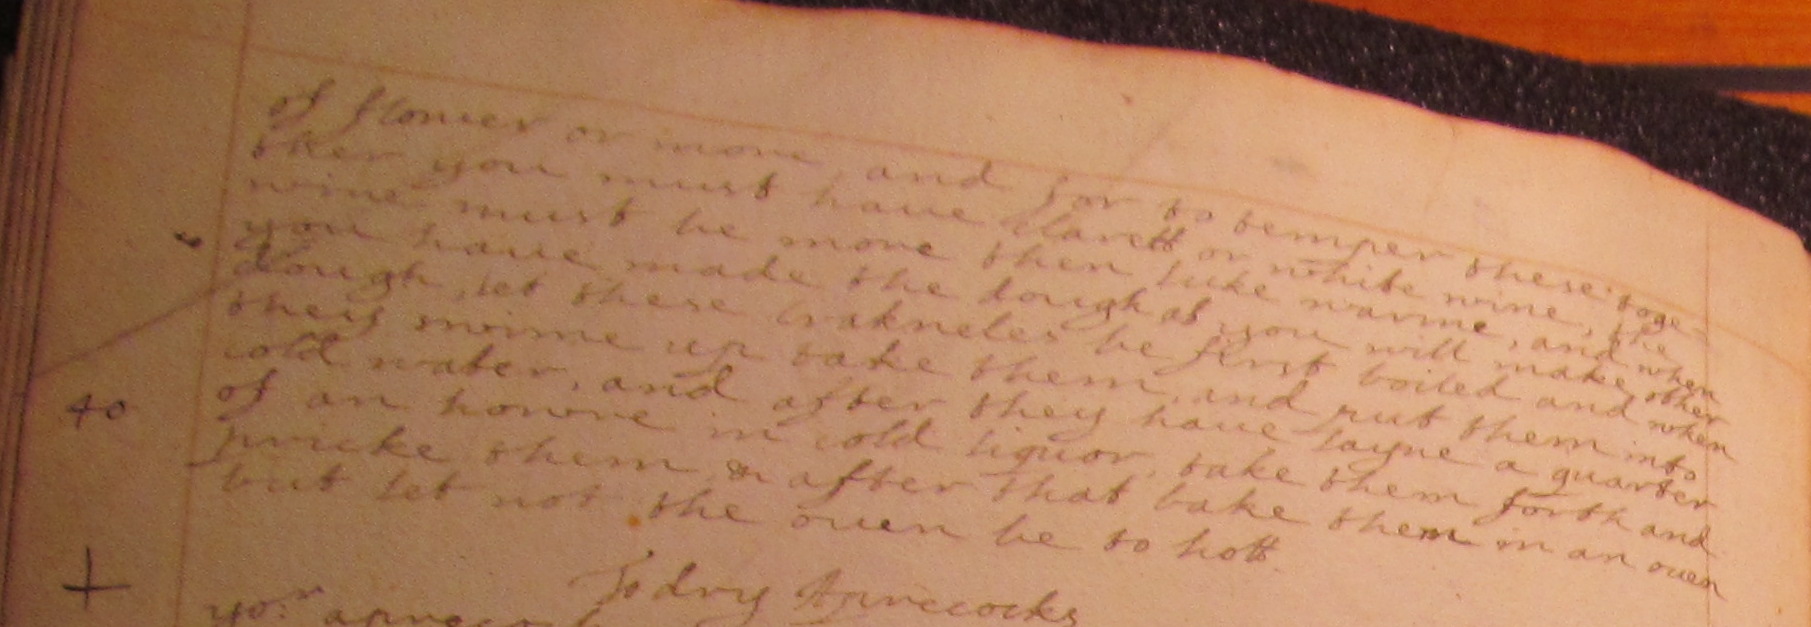 of flower or more, and for to temper these toge-
ther you must have Clarett or white wine, the
wine must be more then luke warme, and when
you have made the dough as you will make other
dough, let these Crakneles be first boiled and when
they swime up take them, and put them into
cold water, and after they have layne a quarter
40
of an howre in cold liquor, take them forth and
pricke them, & after that bake them in an oven
but let not the ouen be to hott.
+
To dry Aprecocks
yor